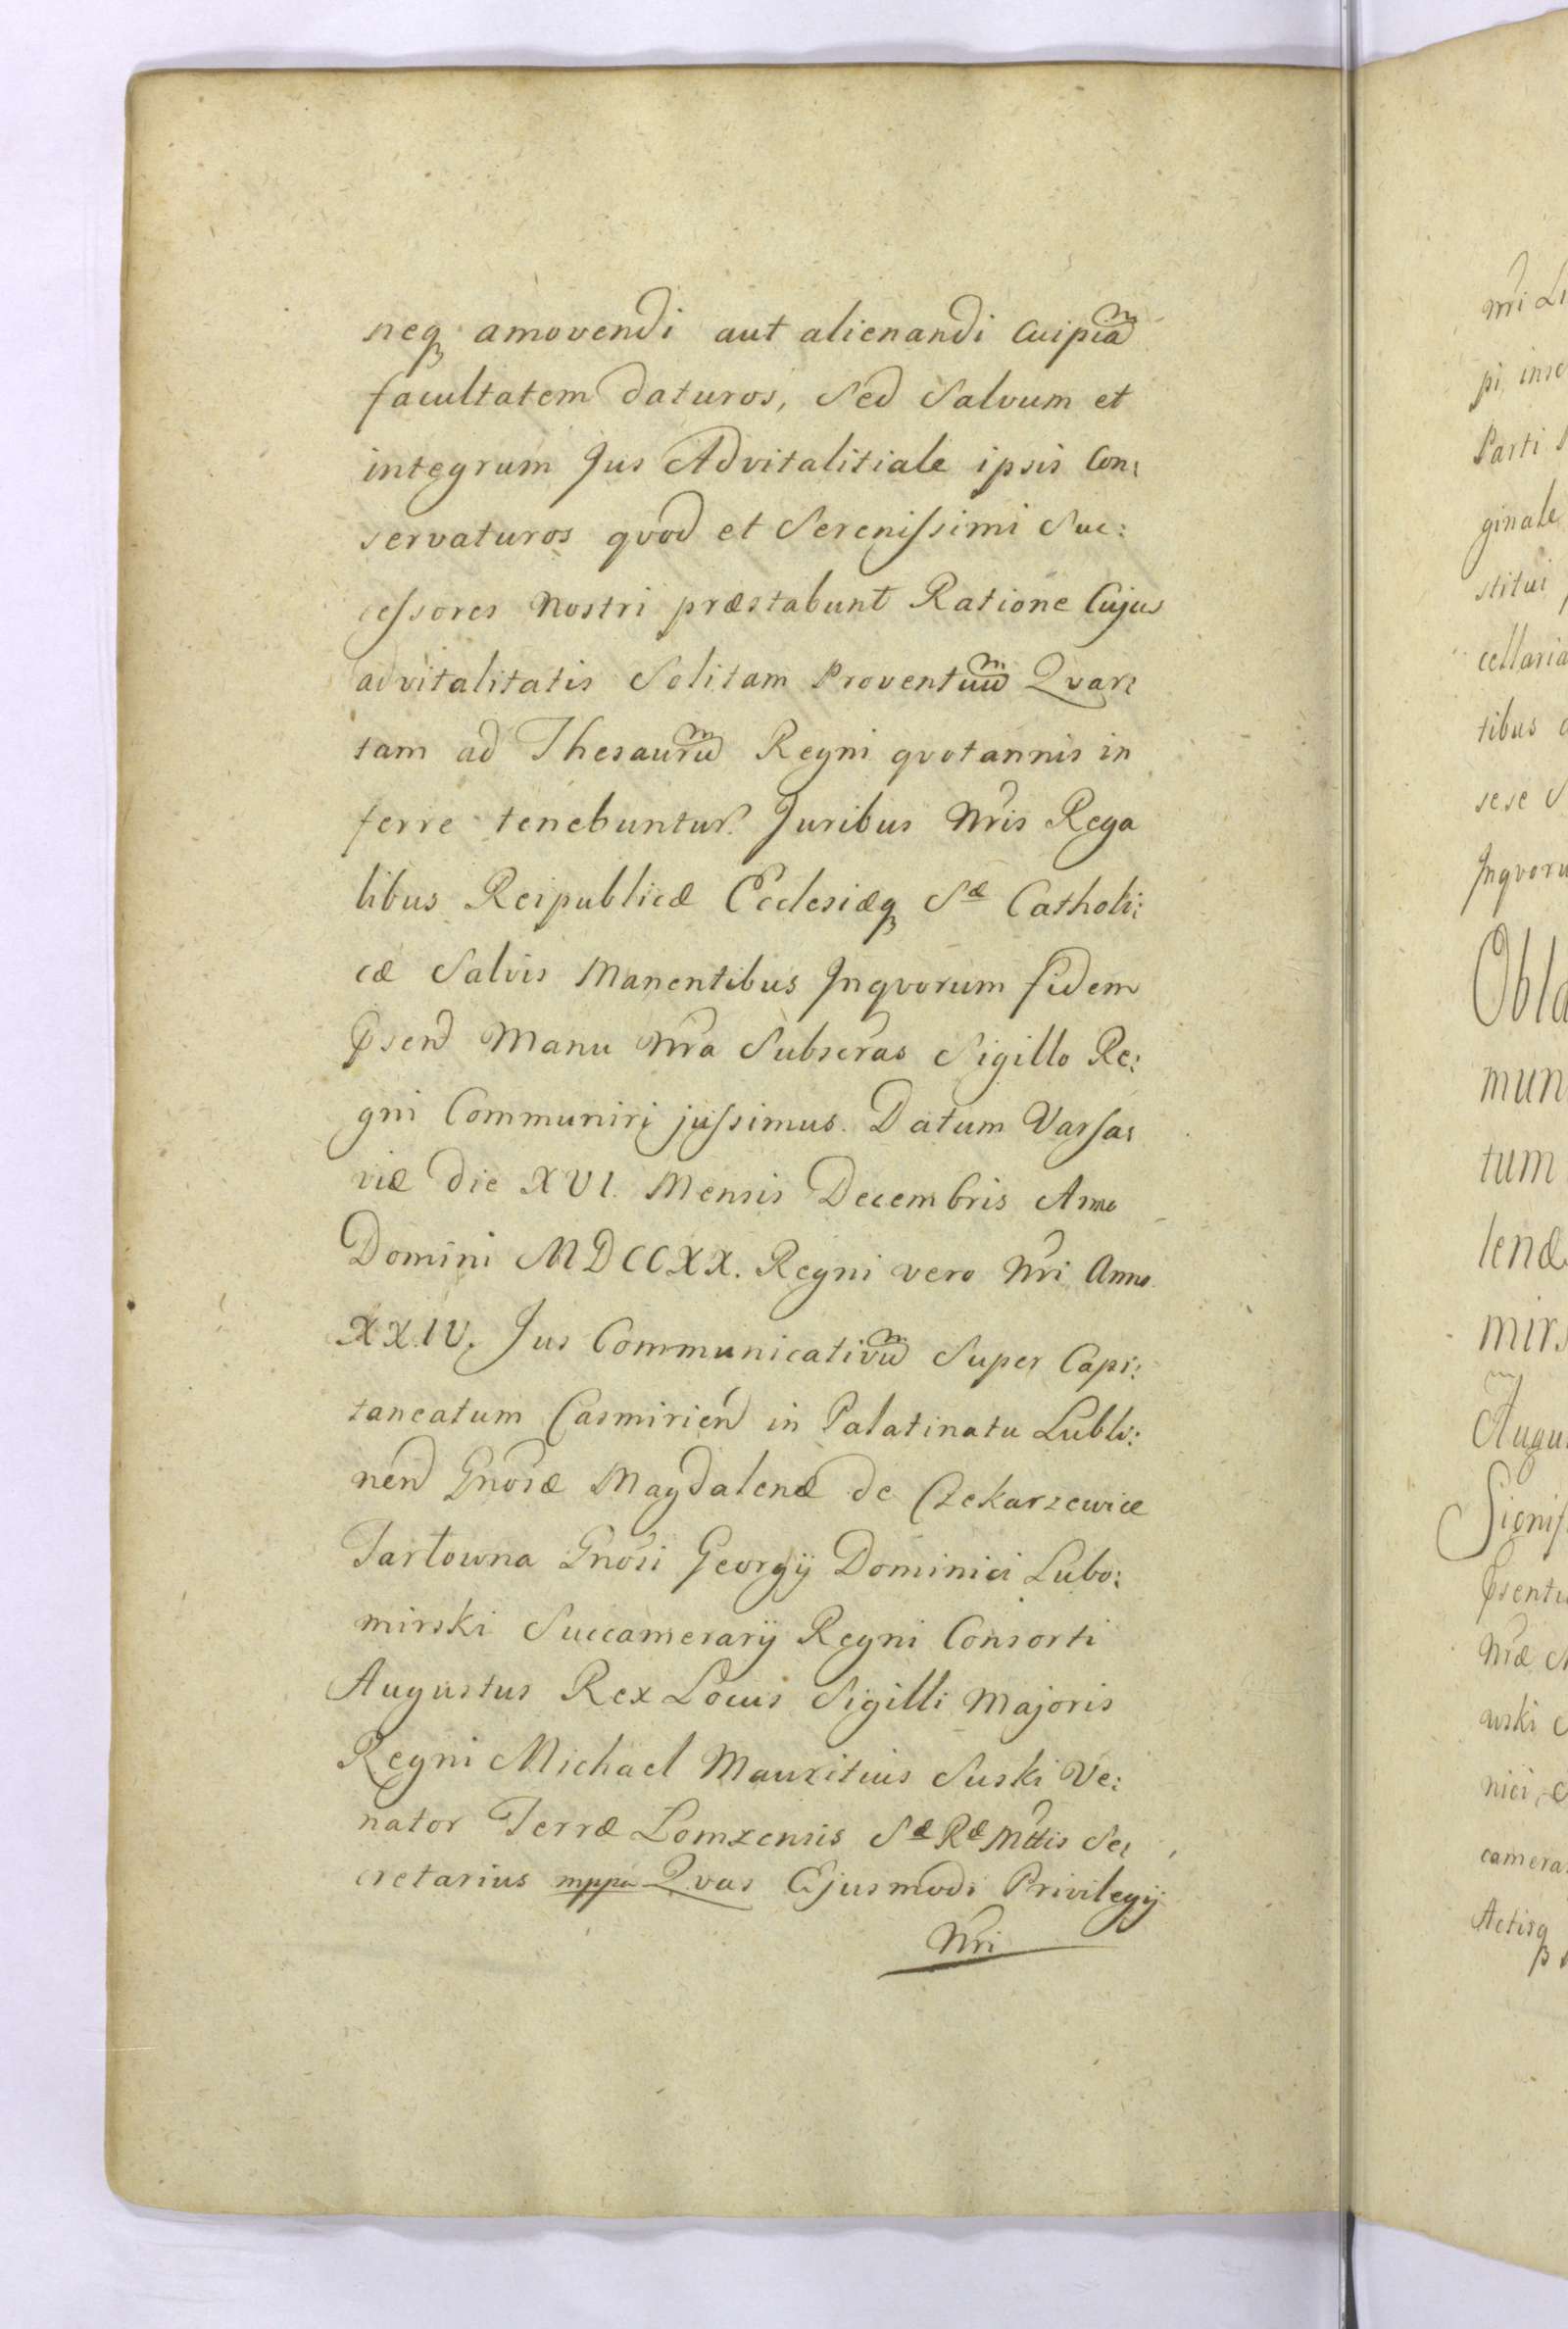 neq amovendi aut alienandi cuipia͠m
facultatem daturos, Sed Salvum et
integrum Jus Advitalitiale ipsis Con:
servaturos qvod et Serenissimi Suc:
cessores Nostri præstabunt Ratione Cujus
advitalitatis Solitam Proventuu͠m Qvar:
tam ad Thesauru͠m Regni qvotannis in
ferre tenebuntur. Juribus Nris Rega
libus Reipublicæ Ecclesiæq Sæ Catholi:
cæ Salvis Manentibus Inqvorum fidem
Psen Manu Nra Subscras Sigillo Re:
gni Communiri jussimus. Datum Varsa:
viæ die XVI. Mensis Decembris Anno
Domini MDCCXX. Regni vero Nri Anno
XXIV. Jus Communicativu͠m Super Capi:
taneatum Casmirien in Palatinatu Lubli:
nen Gnosæ Magdalenæ de Czekarzewice
Tarłowna Gnosi Georgij Dominici Lubo:
mirski Succamerarij Regni Consorti
Augustus Rex Locus Sigilli Majoris
Regni Michael Mauritius Suski Ve:
nator Terræ Lomzensis Sæ Ræ Mttis Se:
cretarius mppa Qvas Ejusmodi Privilegij
Nri
pi,
Parti
ginale
stitui
cellaria
tibus
sese
Inqvoru
Obla
mun
tum
lenæ
mirs
Augu
Signif
Psentu
Nræ
wski
nici,
camera
Actisq